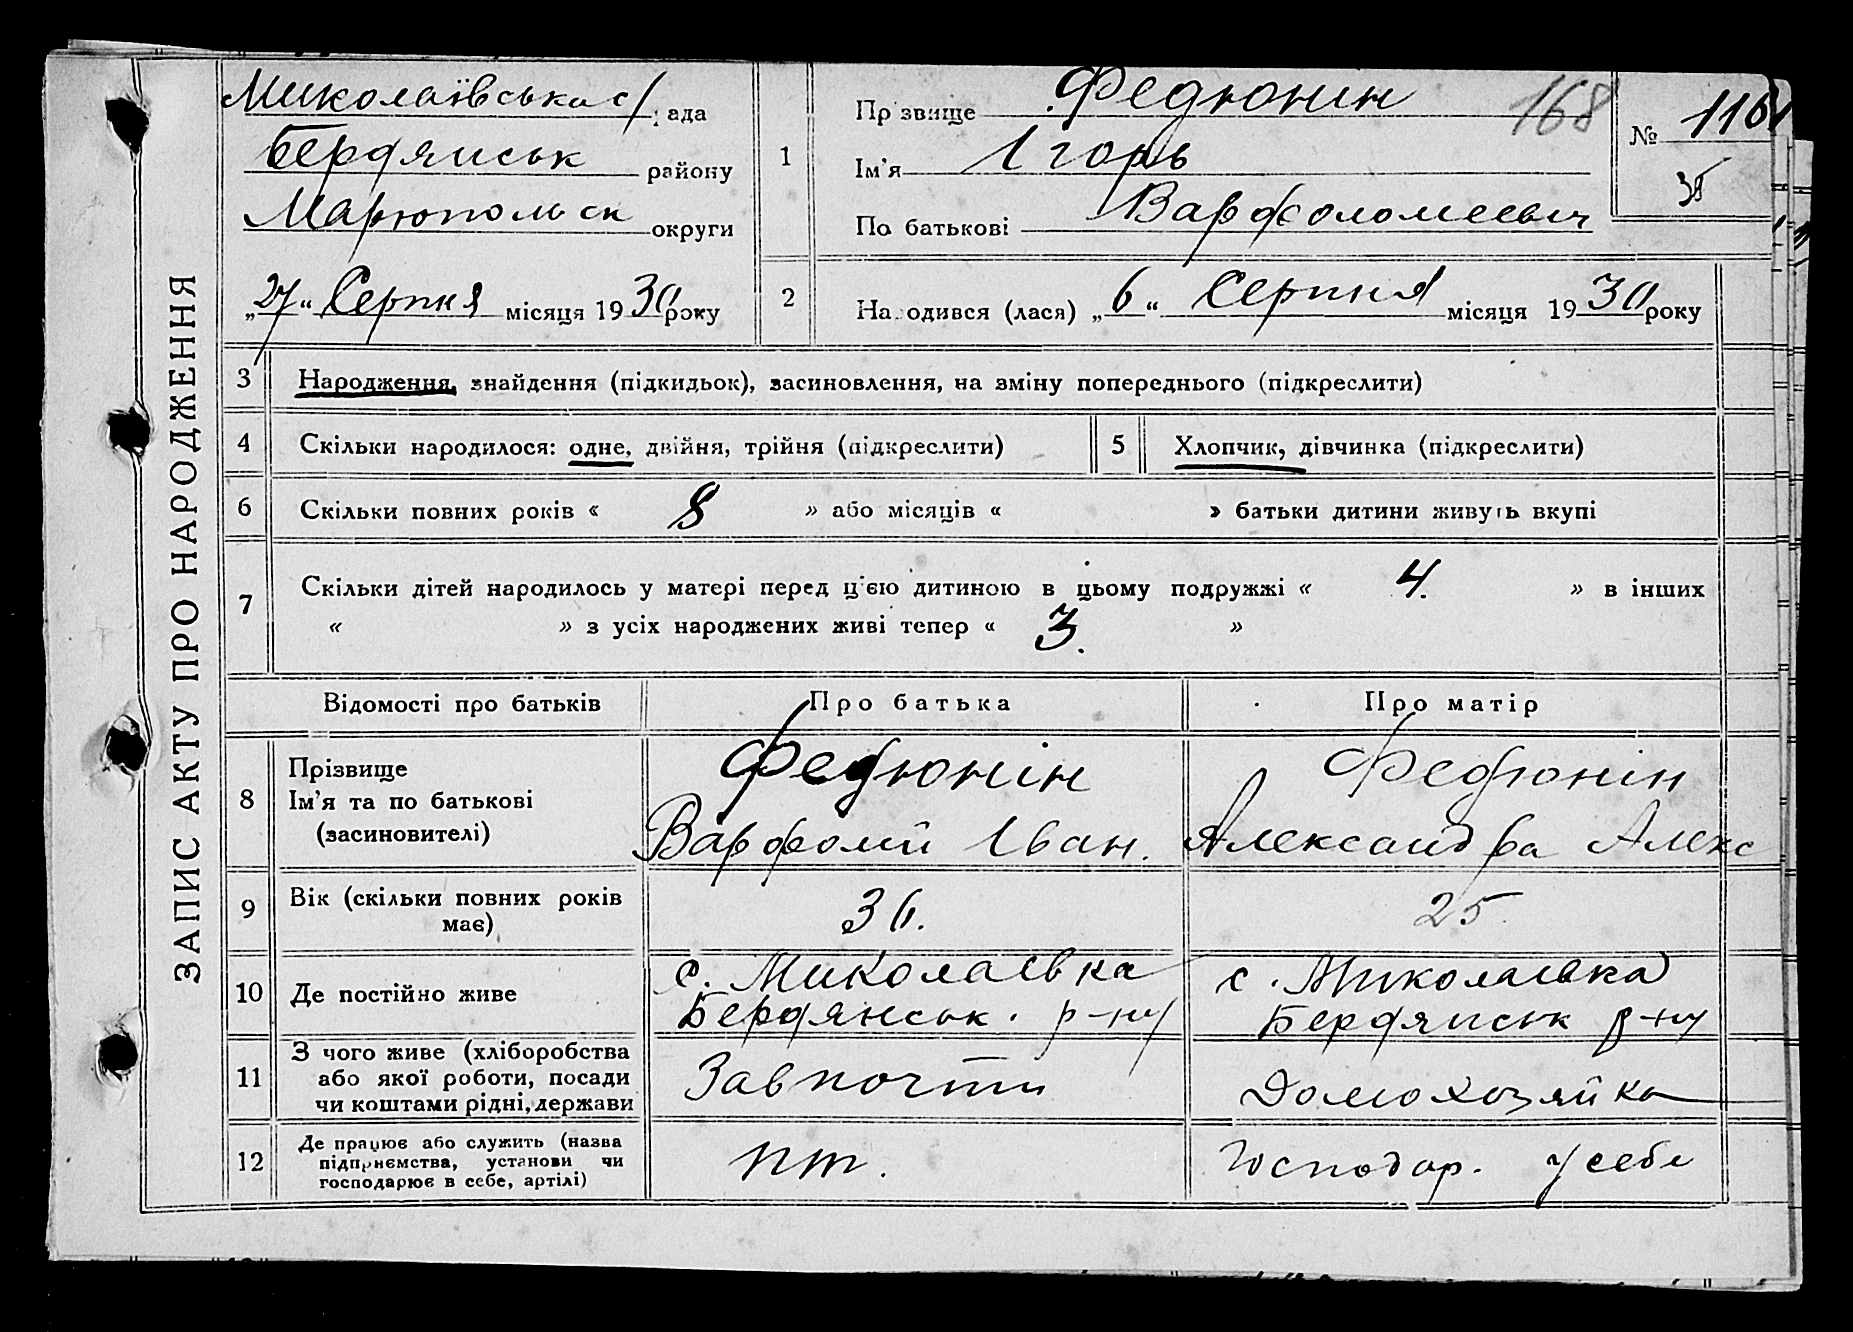 ЗАПИС АКТУ ПРО НАРОДЖЕННЯ
Миколаївська с/рада
Бердянськ району
Марюпольск округи
„27“ Серпня місяця 1930 року
1
Прізвище Федюнин
168
Ім'я Ігорь
По батькові Варфоломеевич
№ 116
35
2
Народився (лася) „6“ Серпня місяця 1930 року
3 Народження, знайдення (підкидьок), засиновлення, на зміну попереднього (підкреслити)
4 Скільки народилося: одне, двійня, трійня (підкреслити) 5 Хлопчик, дівчинка (підкреслити)
6 Скільки повних років « 8 » або місяців « » батьки дитини живуть вкупі
7 Скільки дітей народилось у матері перед ц'єю дитиною в цьому подружжі « 4. » в інших
« » з усіх народжених живі тепер « 3. »
Відомості про батьків Про батька Про матір
8 Прізвище
Ім'я та по батькові
(засиновителі)
Федюнін
Варфолий Іван.
Федюнін
Александра Алекс
9 Вік (скільки повних років
має)
36.
25
10 Де постійно живе
с. Миколаевка
Бердянськ. р-ну
с. Миколаевка
Бердянськ р-ну
11 З чого живе (хліборобства
або якої роботи, посади
чи коштами рідні, держави
Завпочти
Домохозяйка
12 Де працює або служить (назва
підприємства, установи чи
господарює в себе, артілі)
пт.
Господар. у себе